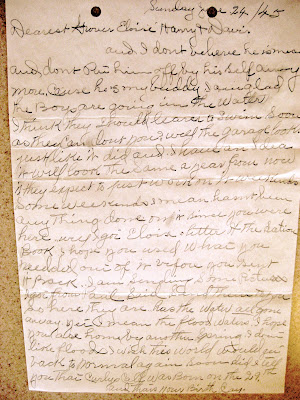 Sunday June 24/45
Dearest Eloise Harry & Davis
and, I dont believe he is mean
and dont Put him off by his self any
more, Cause he some buddy I am glad
the Boys are going in the Water
I think they should learn to Swim Soon
as they can, well the garage looks
just like it did and I have an Idea
it will look the same a year from now
they expect to just work on
Some weekends I mean
any thing done on it since you were
here. well I got Elois letter & the Ration
Book & I hope you used What you
needed out of it before you sent
it Back. I am Sending Some Pictures
I got from
So here they are. has the Water all gone
away yet I mean the Flood Waters. I hope
you are home by another Spring. I dont
like floods. I wish this World would get
back to Normal again Soon. did I tell
you that Curley was Born on the 28th
and thats Your Birth Day.